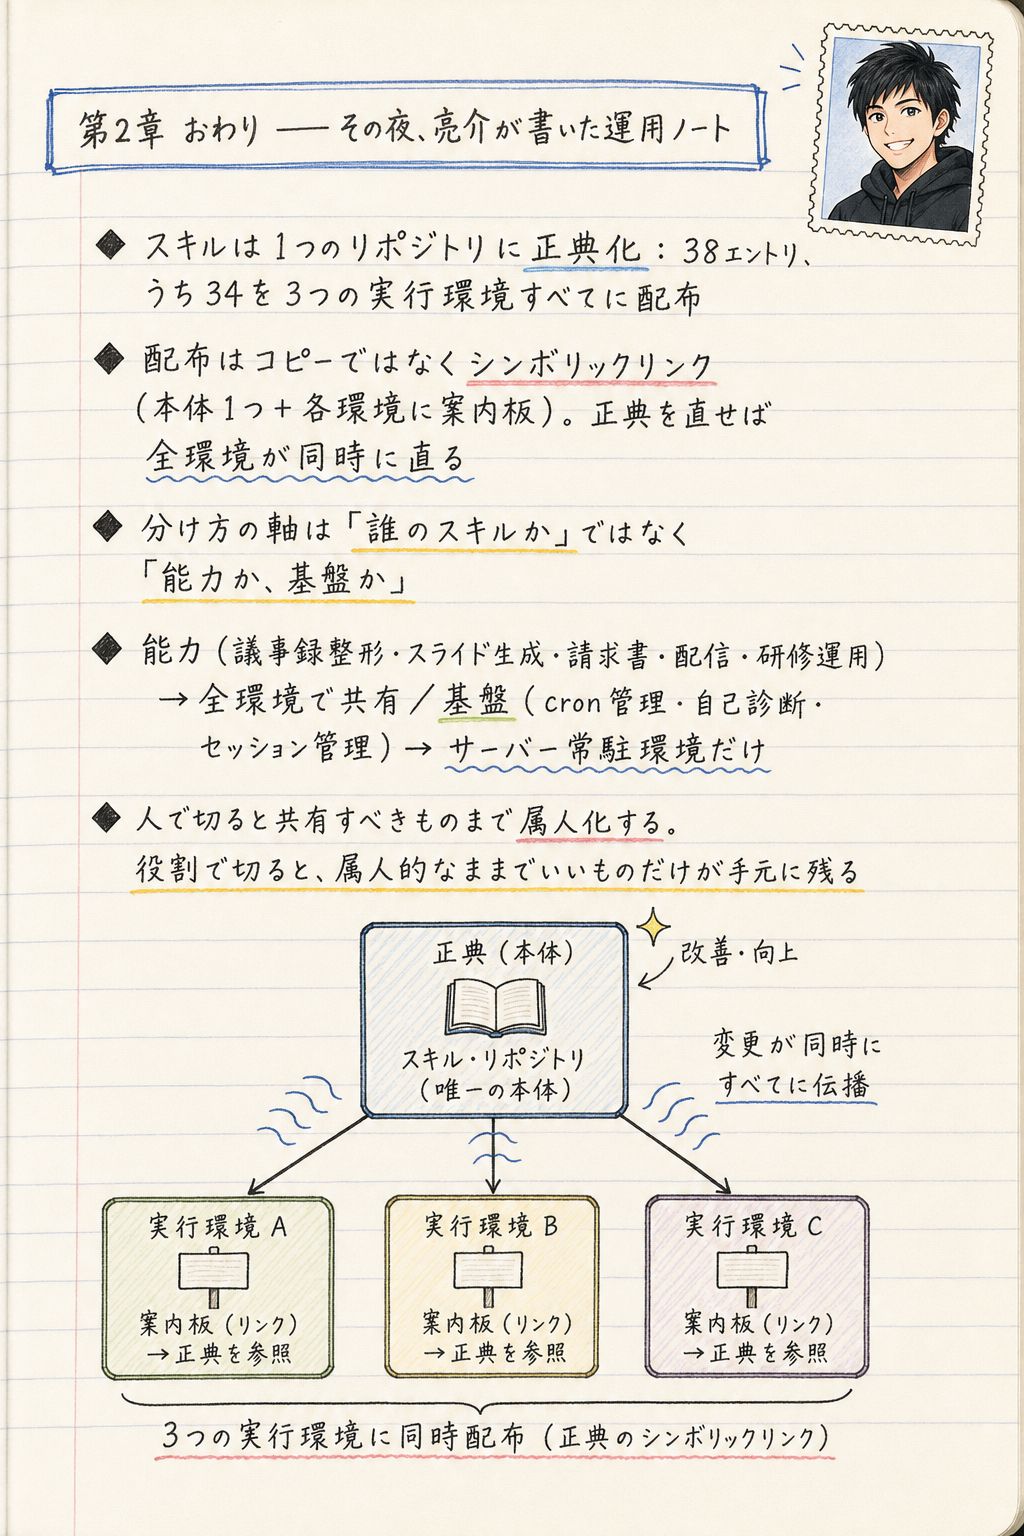 第2章 おわり ―― その夜、亮介が書いた運用ノート
◆ スキルは1つのリポジトリに正典化：38エントリ、
うち34を3つの実行環境すべてに配布
◆ 配布はコピーではなくシンボリックリンク
(本体1つ+各環境に案内板)。正典を直せば
全環境が同時に直る
◆ 分け方の軸は「誰のスキルか」ではなく
「能力か、基盤か」
◆ 能力(議事録整形・スライド生成・請求書・配信・研修運用)
→全環境で共有／基盤(cron管理・自己診断・
セッション管理)→サーバー常駐環境だけ
◆ 人で切ると共有すべきものまで属人化する。
役割で切ると、属人的なままでいいものだけが手元に残る
正典(本体)
改善・向上
スキル・リポジトリ
(唯一の本体)
変更が同時に
すべてに伝播
実行環境A
案内板(リンク)
→正典を参照
実行環境B
案内板(リンク)
→正典を参照
実行環境C
案内板(リンク)
→正典を参照
3つの実行環境に同時配布(正典のシンボリックリンク)